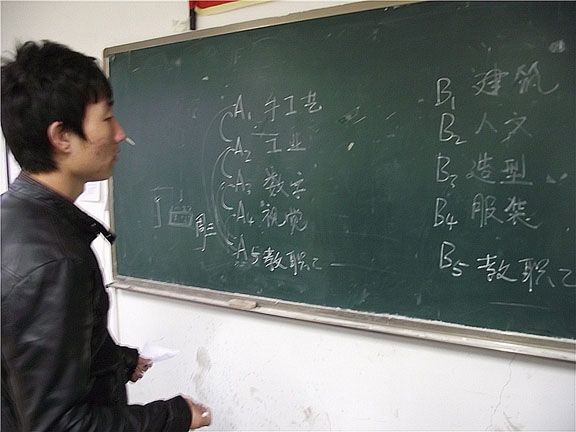 A1 手工艺
A2 工业
A3 数字
A4 视觉
A5 教职工
B1 建筑
B2 人文
B3 造型
B4 服装
B5 教职工